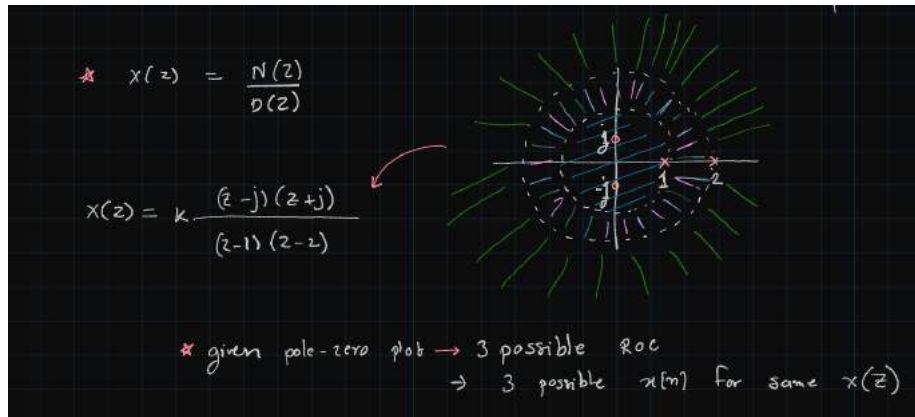 * X(z) = N(z) / D(z)
j
-j
1
2
X(z) = K (z-j)(z+j) / (z-1)(z-2)
* given pole-zero plot → 3 possible ROC
→ 3 possible x[n] for same X(z)